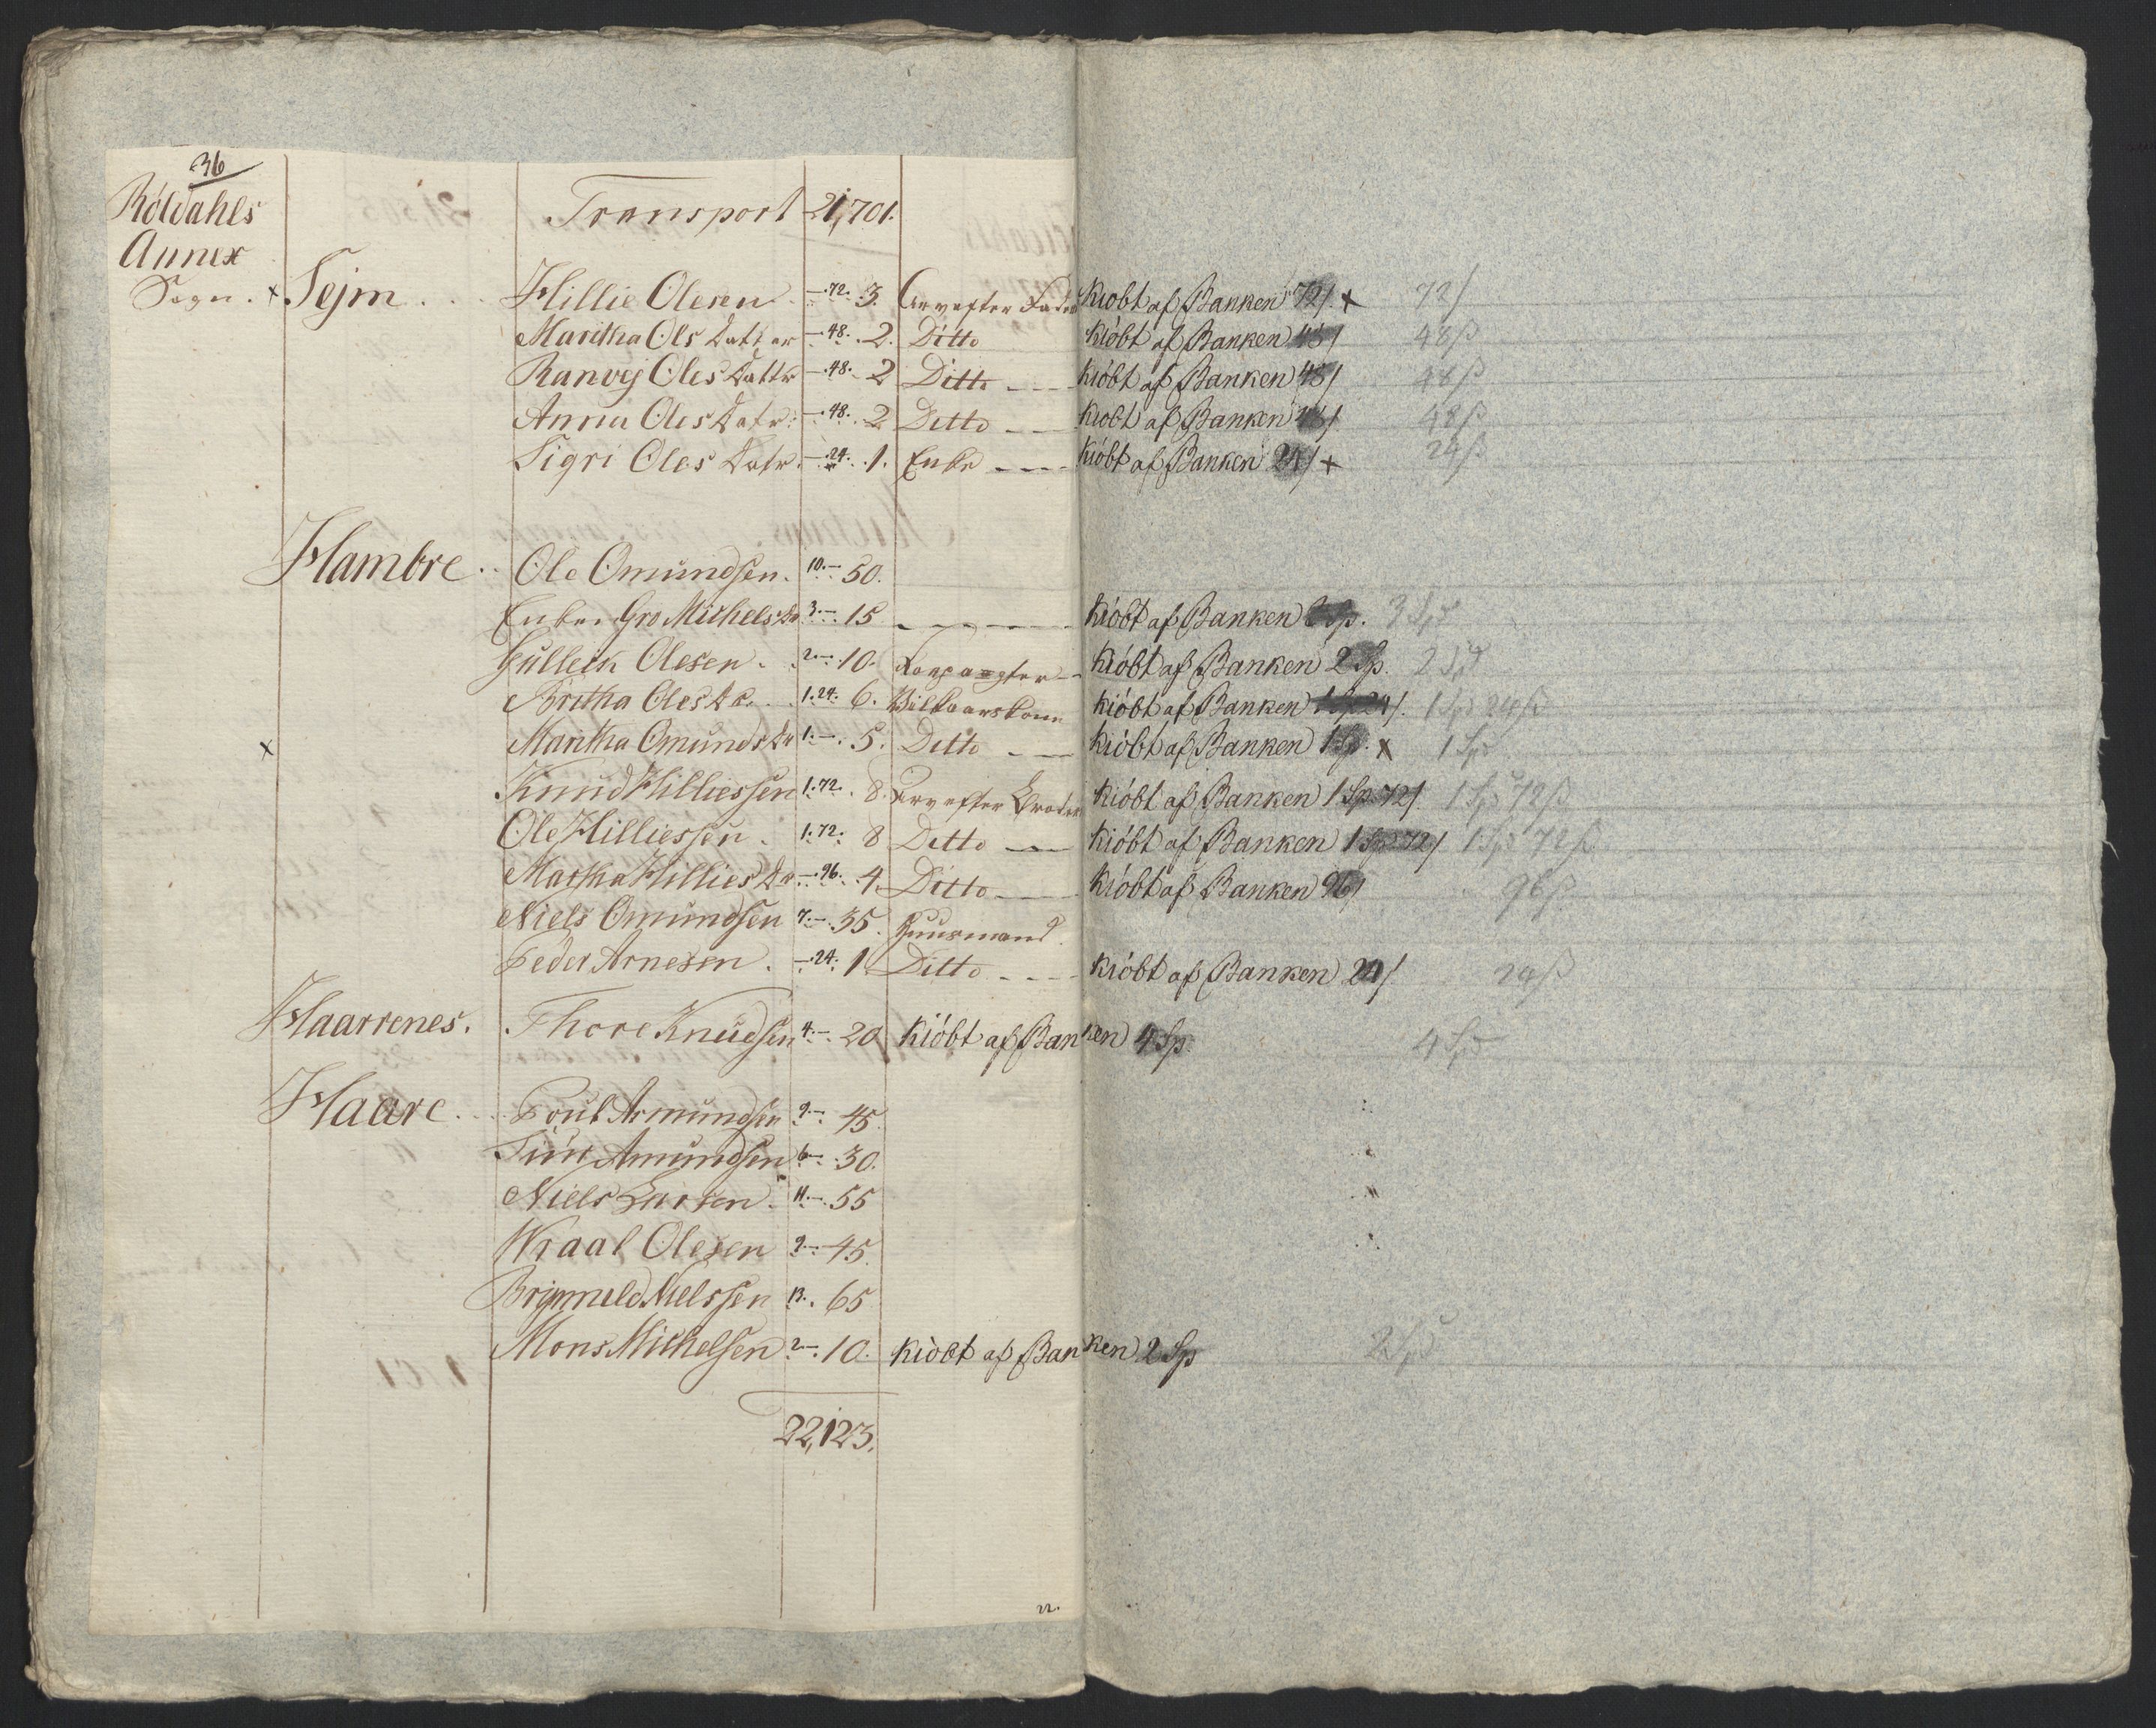 36
Róldahls
Annex
Sogn.
Transport 21,701.
x Sejm . . Hillie Olesen — .72. 3. Arv efter Fader Kióbt af Banken 72/ x 72/
Maritha Ols Datter — .48. 2. Ditto Kióbt af Banken 48/ 48ß
Ranvej Oles Dattr — .48. 2 Ditto — Kióbt af Banken 48/ 48ß
Anna Oles Datr: — .48. 2 Ditto — Kióbt af Banken 48/ 48ß
Sigri Oles Datr. — .24. 1. Enke — Kióbt af Banken 24/ x 24ß
Hambre . . Ole Omundsen. 10.— 50.
Enken Gro Michelsdr 3.— 15 — Kióbt af Banken 3 Sp. 3 Spd
Gulleck Olesen. 2.— 10. Kióbt af Banken 2 Sp. 2 Spd
Britha Olesdr. 1.24. 6. Vilkaarskone Kióbt af Banken 1 Sp 24/. 1 Spd 24ß
x Maritha Omundsdr 1.— 5. Ditto — Kióbt af Banken 1 Sp. x 1 Spd
Knud Hilliessen 1.72. 8. Arv efter Broder Kióbt af Banken 1 Sp 72/ 1 Spd 72ß
Ole Hilliessen. 1.72. 8 Ditto — Kióbt af Banken 1 Sp 72/ 1 Spd 72ß
Martha Hilliesdr — .96. 4. Ditto — Kióbt af Banken 96/ 96ß
Niels Omundsen 7.— 35. Huusmand.
Peder Arnesen. — .24. 1 Ditto — Kióbt af Banken 24/ 24ß
Haarrenes. Thore Knudsen 4.— 20 Kióbt af Banken 4 Sp. 4 Spd
Haare . . Poul Asmundsen 9.— 45.
Amundsen 6.— 30.
Niels Larsen. 11.— 55
Wraal Olesen 9.— 45.
Brynneld Nielssen 13. 65
Mons Michelsen 2.— 10. Kióbt af Banken 2 Sp 2 Spd
22,123.
22.